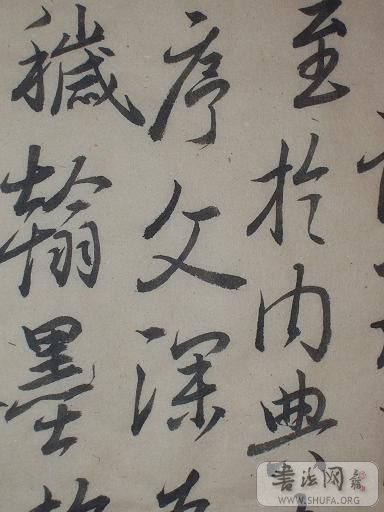 至於内典
序文深
穢翰墨
書法网
WWW.SHUFA.ORG